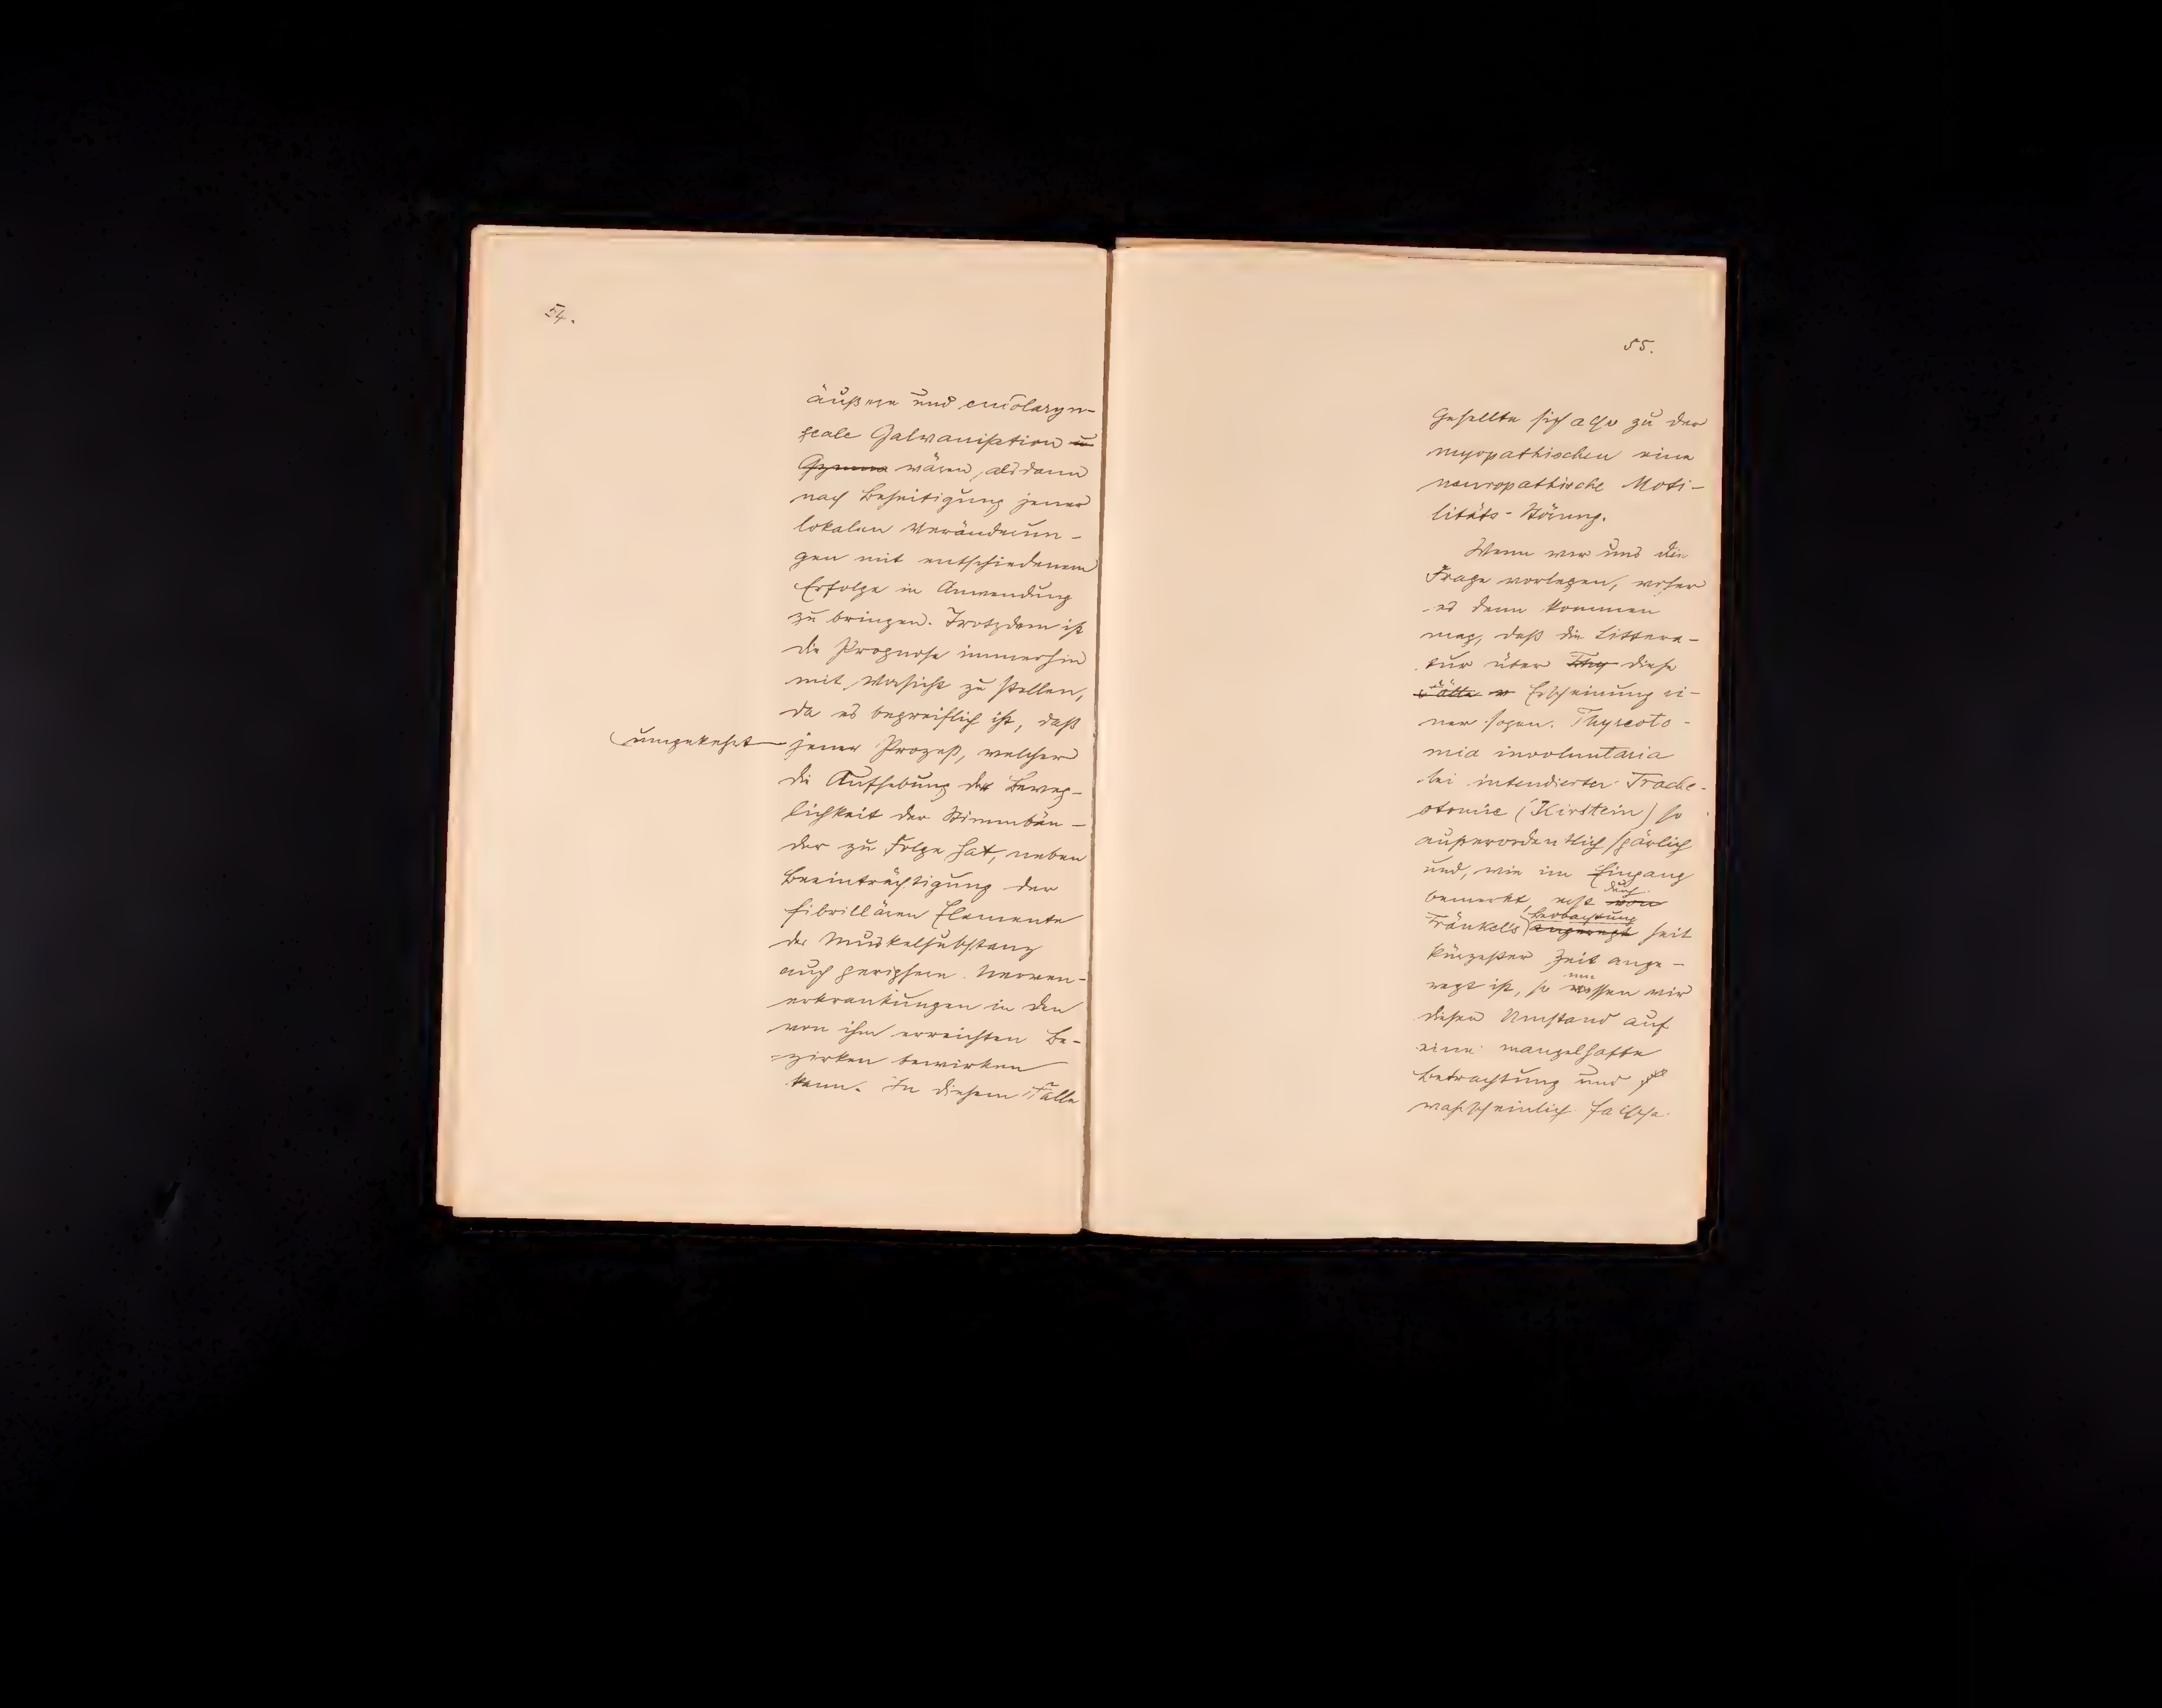 54.
äußere und endolaryn-
geale Galvanisation u
Gymna wären, alsdann
nach Beseitigung jener
lokalen Veränderun-
gen mit entschiedenem
Erfolge in Anwendung
zu bringen. Trotzdem ist
die Prognose immerhin
mit Vorsicht zu stellen,
da es begreiflich ist, daß
umgekehrt jener Prozeß, welcher
die Aufhebung der Beweg-
lichkeit der Stimmbän-
der zu Folge hat, neben
Beeinträchtigung der
fibrillären Elemente
der Muskelsubstanz
auch periphere Nerven-
erkrankungen in den
von ihm erreichten Be-
zirken bewirken
kann. In diesem Falle
55.
gesellte sich also zu der
myopathischen eine
neuropathische Moti-
litäts-Störung.
Wenn wir uns die
Frage vorlegen, woher
es denn kommen
mag, daß die Littera-
tur über Thy diese
Erscheinung ei-
ner sogen. Thyreoto-
mia involuntaria
bei intendierter Trache-
otomie (Kirstein) so
außerordentlich spärlich
und, wie im Eingang
bemerkt, erst von durch
Fränkel's angeregt Beobachtung seit
kürzester Zeit ange-
regt ist, so müssen wir
diesen Umstand auf
eine mangelhafte
Betrachtung und
wahrscheinlich falsche